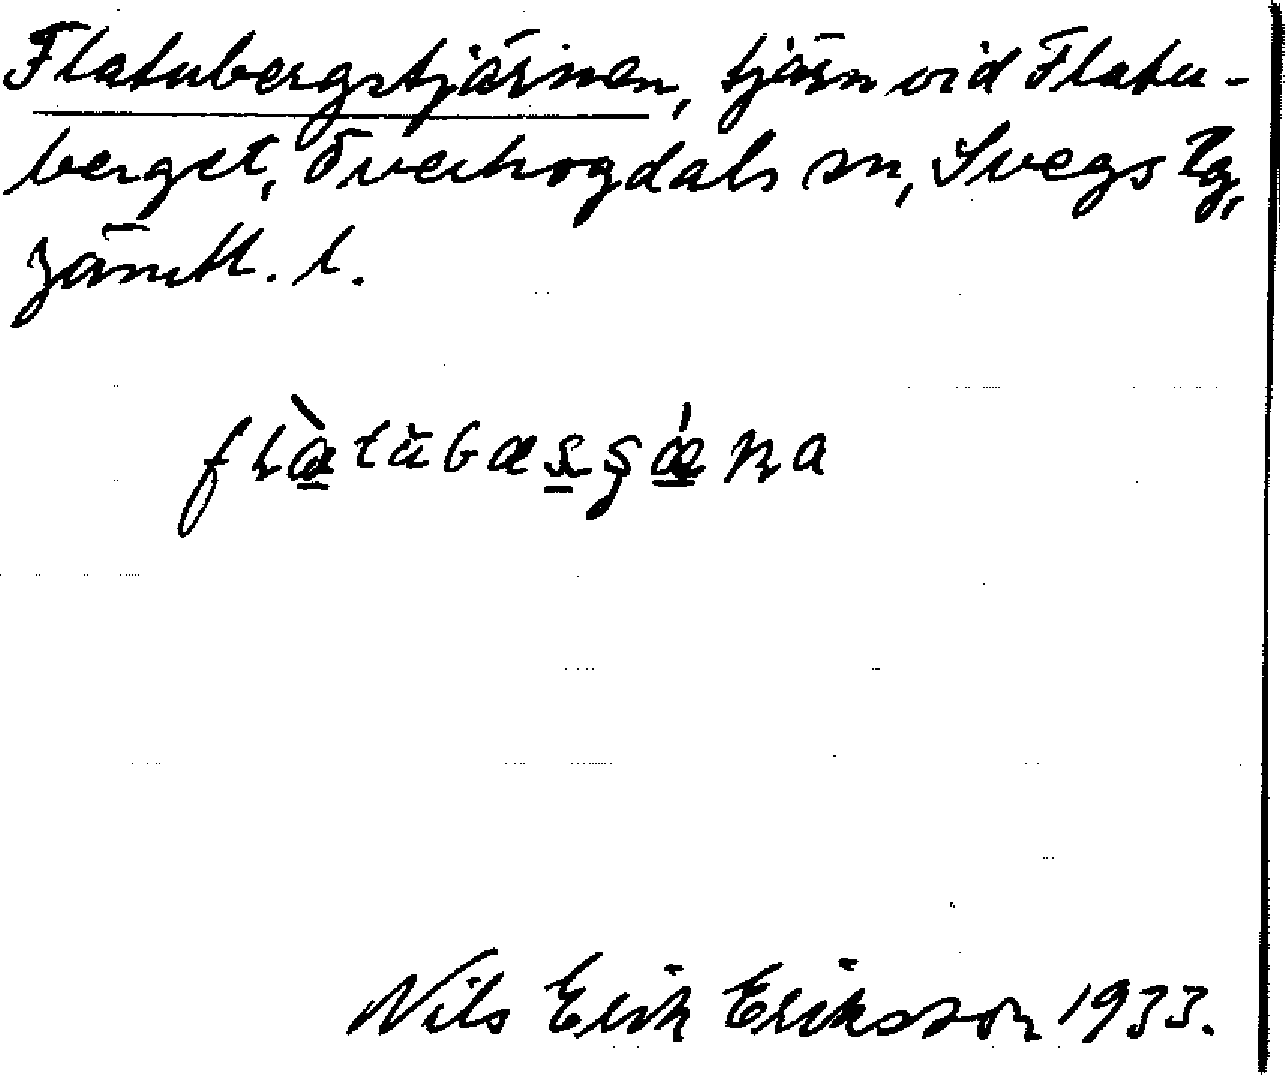 Flatubergstjärnen, tjärn vid Flatu-
berget, Överhogdals sn, Svegs tg,
Jämtl. l.
Nils Erik Eriksson 1933.